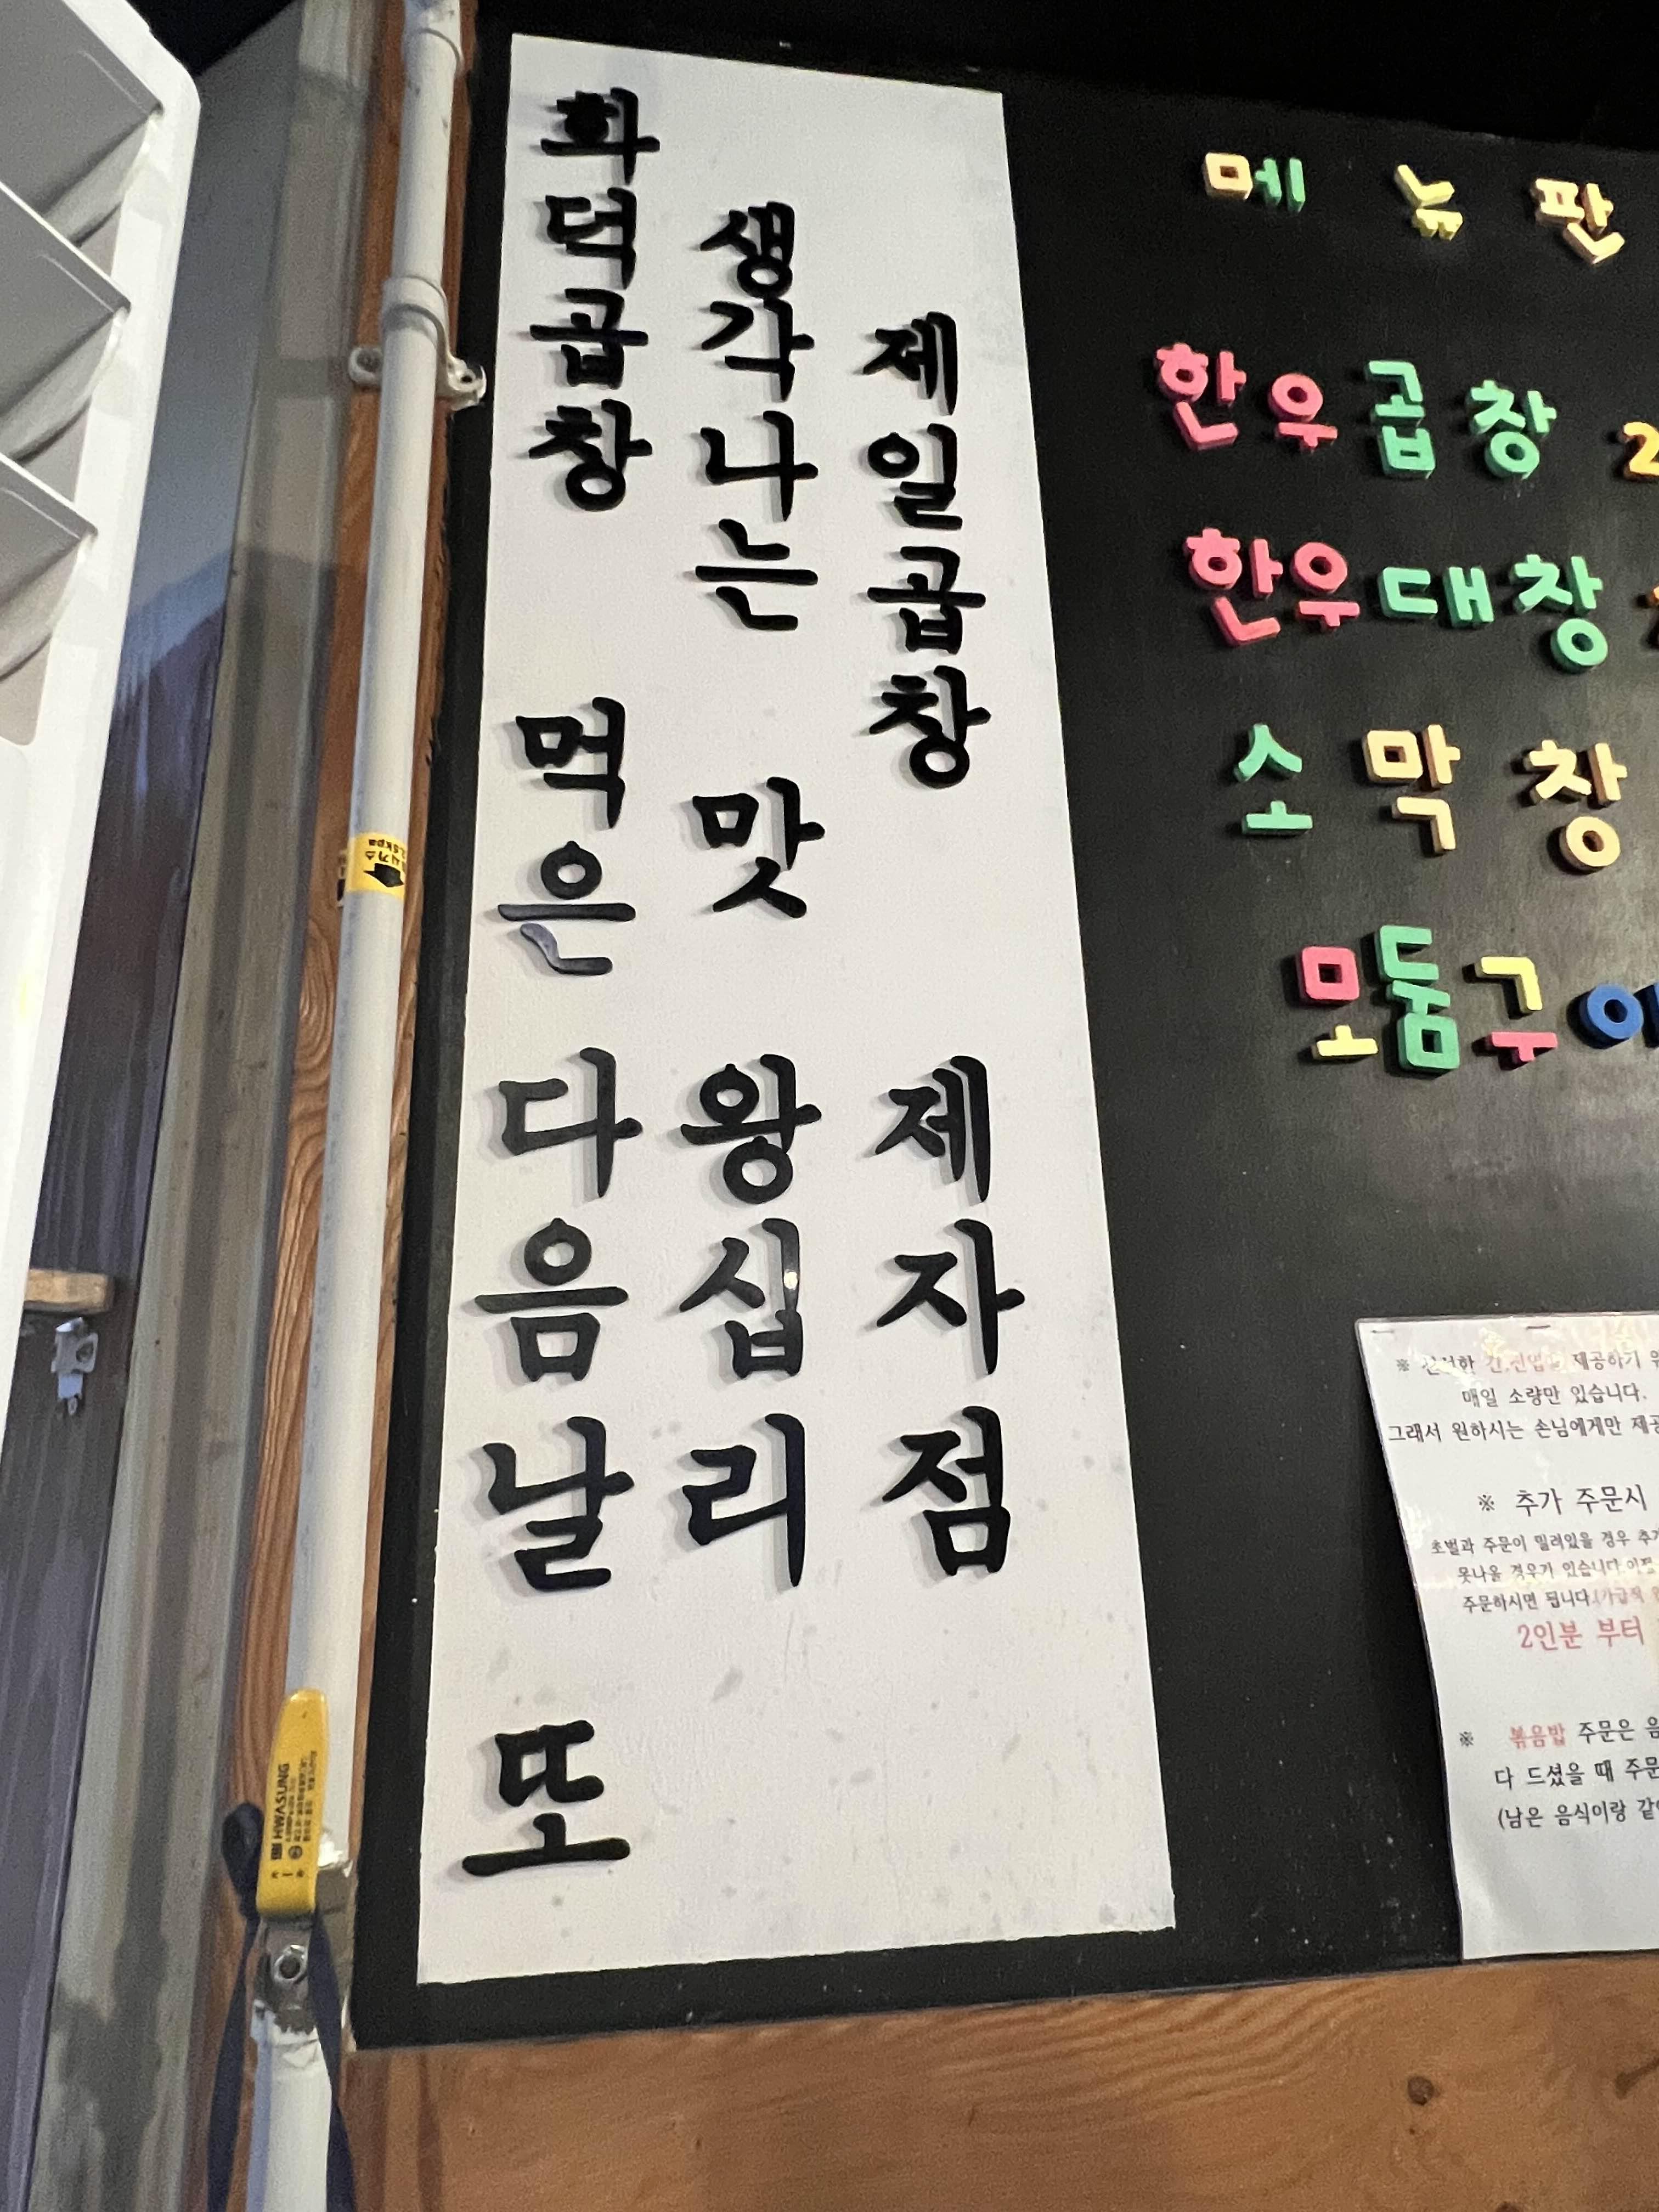 화덕곱창 먹은 다음날 또
생각나는 맛 왕십리
제일곱창 제자점
메뉴판
한우곱창 2
한우대창
소막창
모둠구이
※ 신선한 간,천엽을 제공하기
매일 소량만 있습니다.
그래서 원하시는 손님에게만
※ 추가 주문시
초벌과 주문이 밀려있을 경우
못나올 경우가 있습니다
주문하시면 됩니다.
2인분 부터
※ 볶음밥 주문은
다 드셨을 때
(남은 음식이랑
HWASUNG